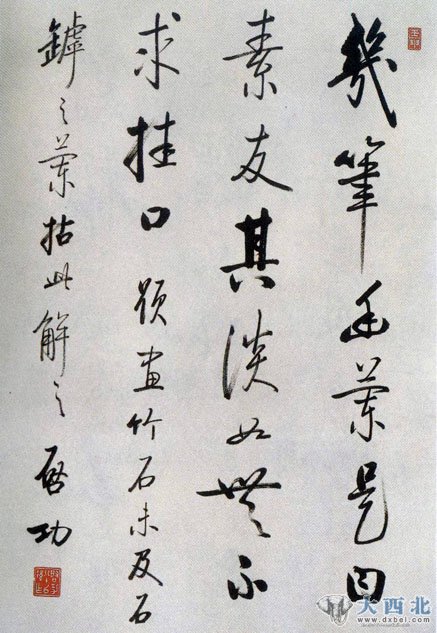 幾筆幽蘭是曰
素友其淡如無不
求挂口 題畫竹石未及石
罅之蘭拈此解之 啟功
大西北
www.dxbei.com